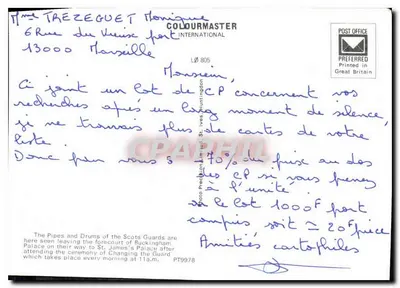 Mme TREZEGUET Monique
6 Rue du Vieux port
13000 Marseille
COLOURMASTER
INTERNATIONAL
POST OFFICE
PREFERRED
Printed in
Great Britain
LØ 805
Monsieur,
Ci joint un lot de CP concernant vos
recherches après un long moment de silence,
je ne trouvais plus de cartes de votre
liste.
Donc pour vous : 70% du prix au dos
des CP si vous prenez
à l'unité.
ou le lot 1000F port
compris soit ≃ 20F pièce
Amitiés cartophiles
The Pipes and Drums of the Scots Guards are
here seen leaving the forecourt of Buckingham
Palace on their way to St. James's Palace after
attending the ceremony of Changing the Guard
which takes place every morning at 11a.m. PT9978